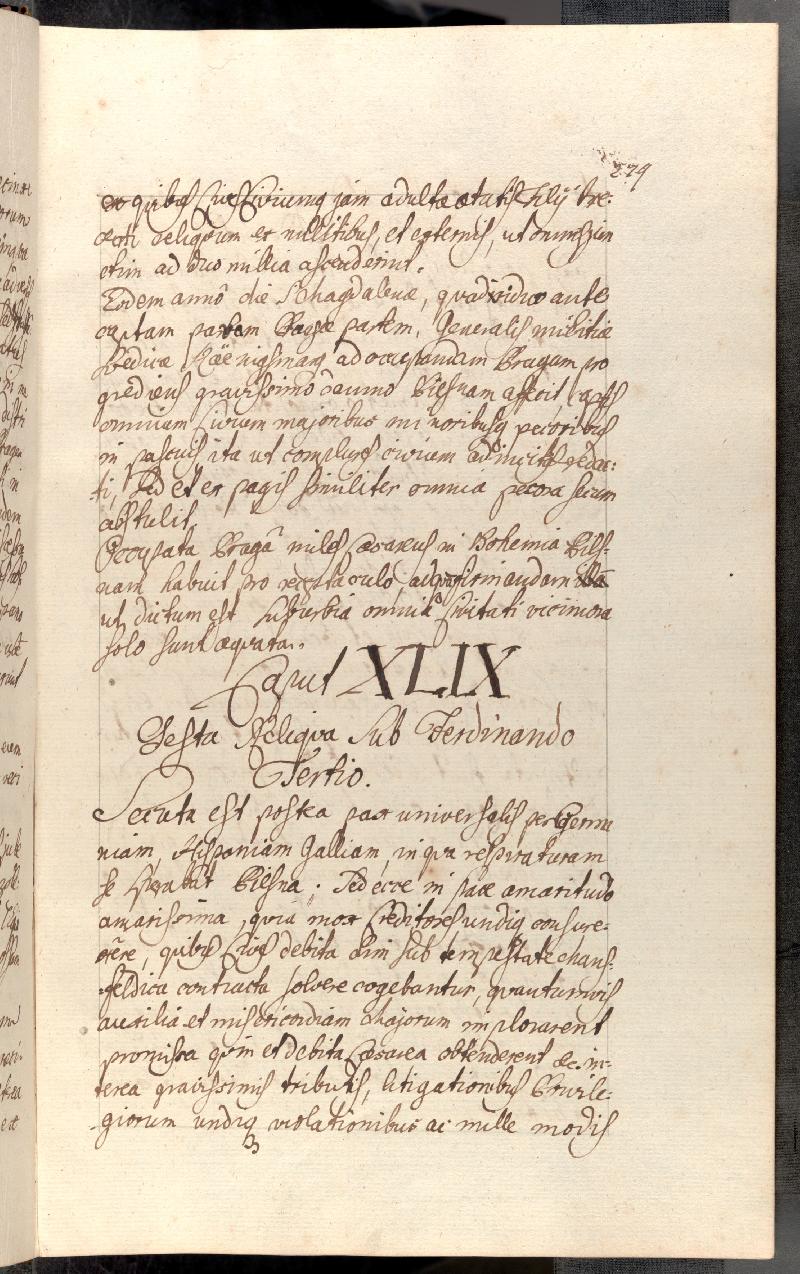 279
ex quibus Cives Civiumq jam adultae aetatis filij tre:
centi reliquum ex militibus, et externis, ut omnes
etim ad duo millia ascenderint.
Eodem anno die S Magdalenae, quadriduo ante
captam parvam Pragae partem, Generalis militiae
Svedicae Köenigsmarg ad occupandam Pragam pro
grediens gravissimo damno Pilsnam affecit captis
omnium Civium majoribus minoribusq pecoribus
in pascuis ita ut complures civium ad incitas redac:
ti, sed et ex pagis similiter omnia pecora secum
abstulit.
Occupata Praga miles Caesareus in Bohemia Pils:
nam habuit pro receptaculo, ad
ut dictum est suburbia omnia Civitati viciniora
solo sunt aequata.
Caput XLIX
Gesta Reliqva Sub Ferdinando
Tertio.
Secuta est postea pax universalis per Germa
niam, Hispaniam Galliam, in qva respiraturam
se sperabat Pilsna. Sed ecce in pace amaritudo
amarissima, quia mox Creditores undiq consurre:
xere, quibus Cives debita olim sub tempestate Mans:
feldica contracta solvere cogebantur, qvantumvis
auxilia et misericordiam Majorum implorarent
promissa qvin et debita Caesarea obtenderent &c. in:
terea gravissimis tributis, litigationibus Privile:
giorum undiq violationibus ac mille modis